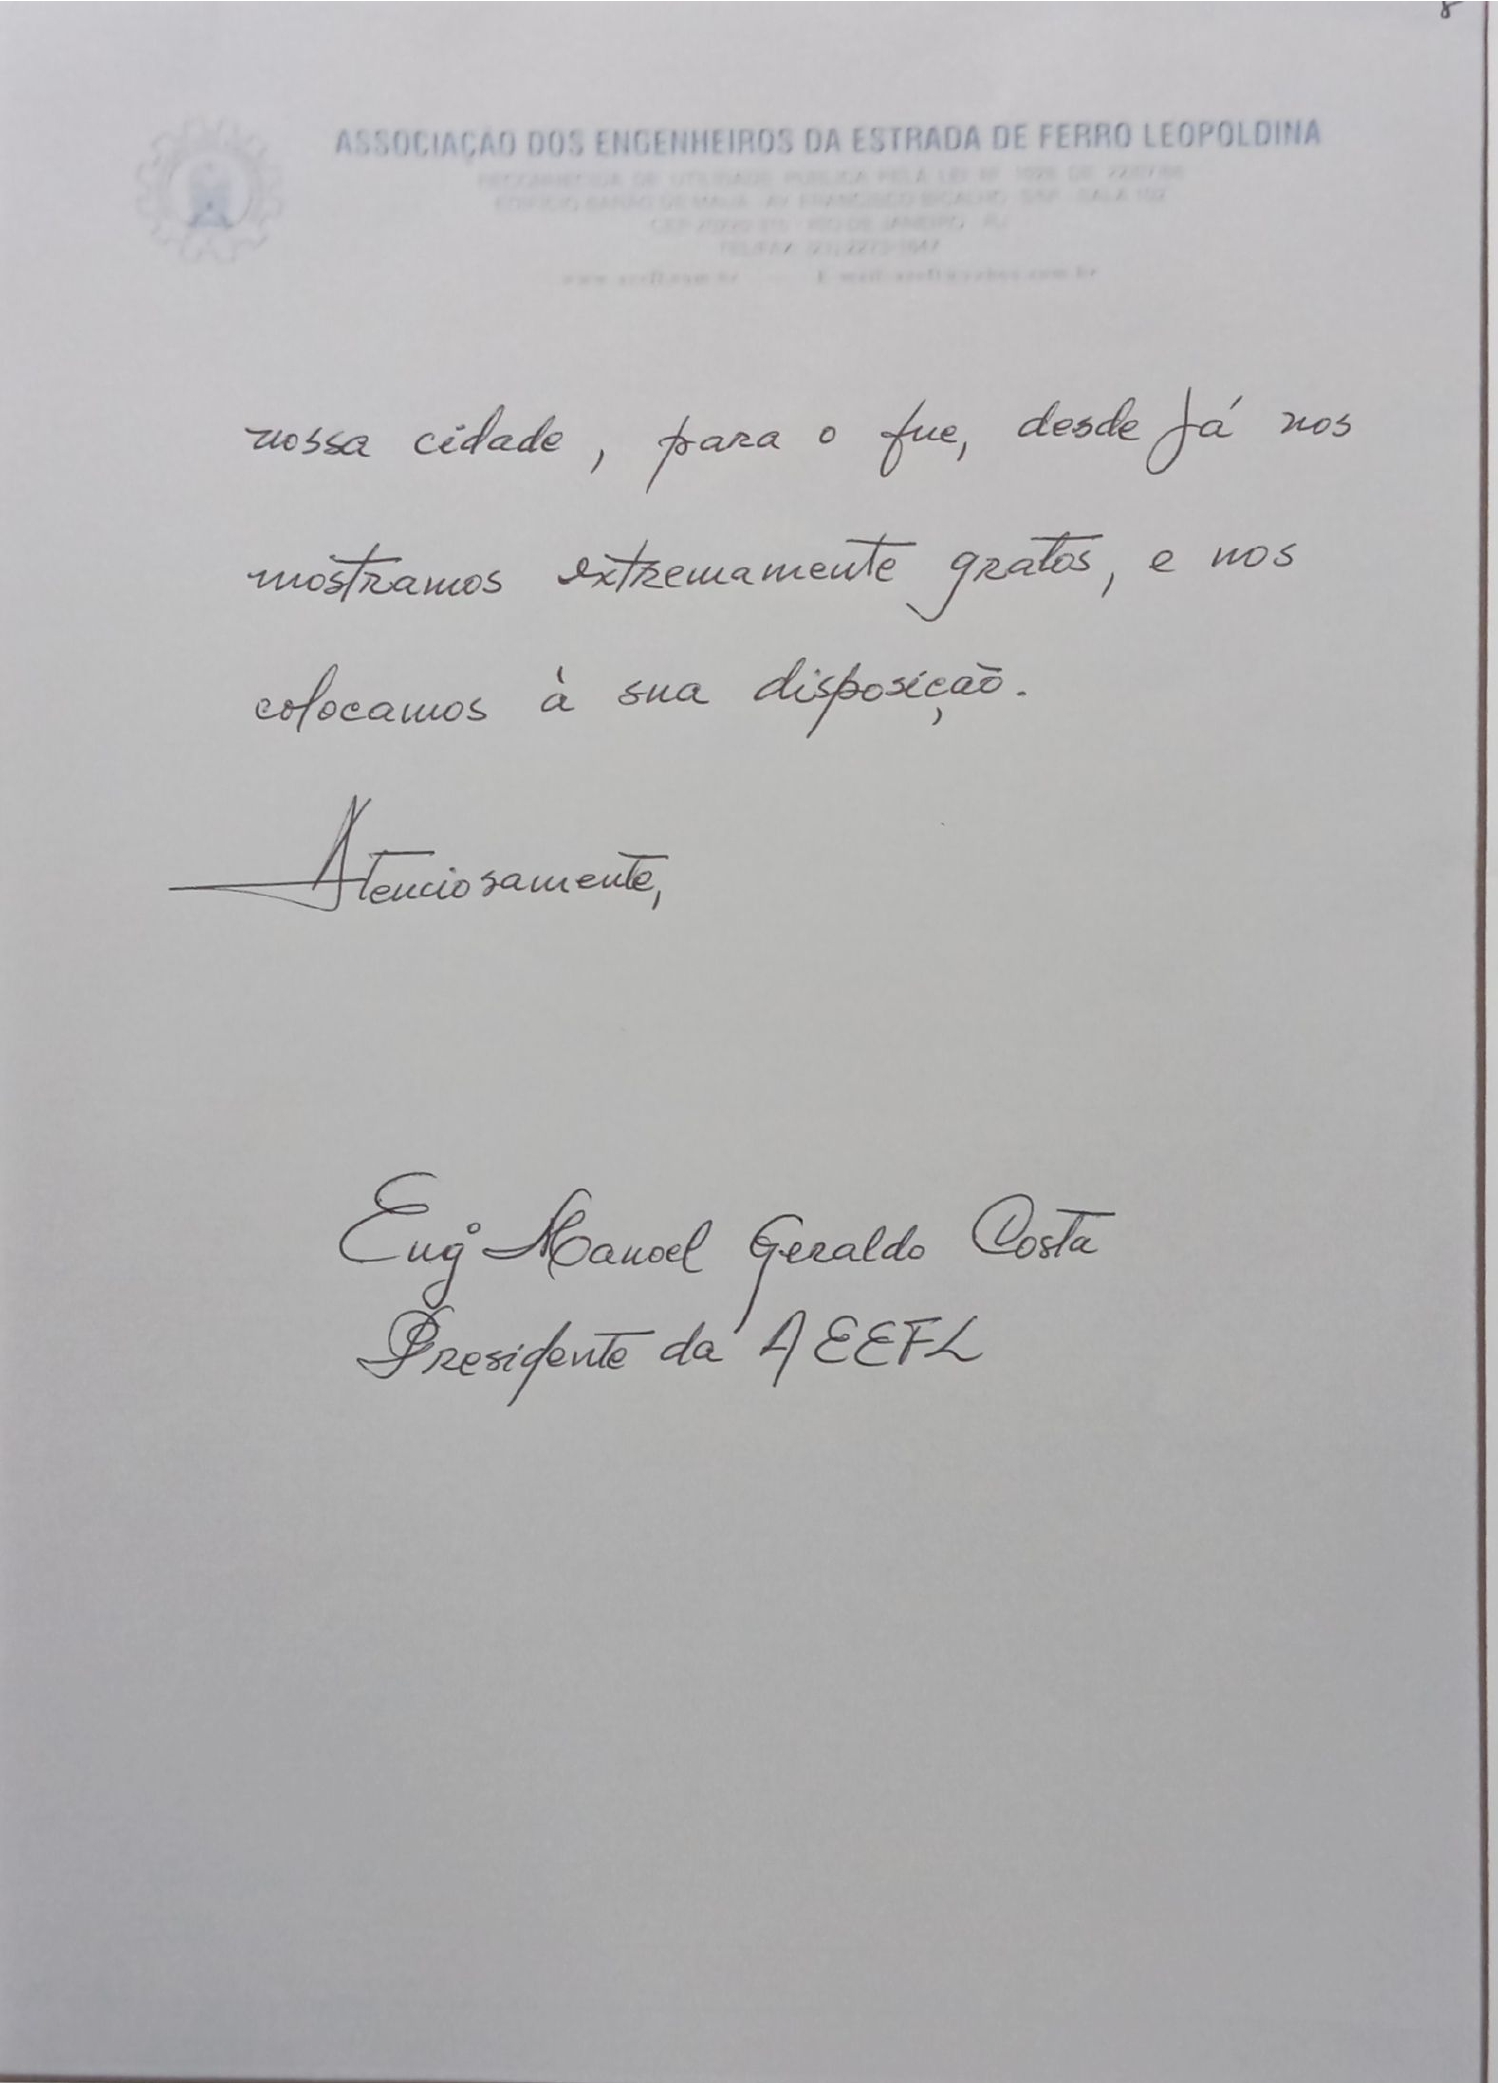 8
ASSOCIAÇÃO DOS ENGENHEIROS DA ESTRADA DE FERRO LEOPOLDINA
RECONHECIDA DE UTILIDADE PÚBLICA PELA LEI Nº DE
EDIFÍCIO BARÃO DE MAUÁ - AV. FRANCISCO BICALHO S/Nº - SALA 102
CEP - RIO DE JANEIRO - RJ
TEL/FAX
nossa cidade, para o que, desde já nos
mostramos extremamente gratos, e nos
colocamos à sua disposição.
Atenciosamente,
Engº Manoel Geraldo Costa
Presidente da AEEFL